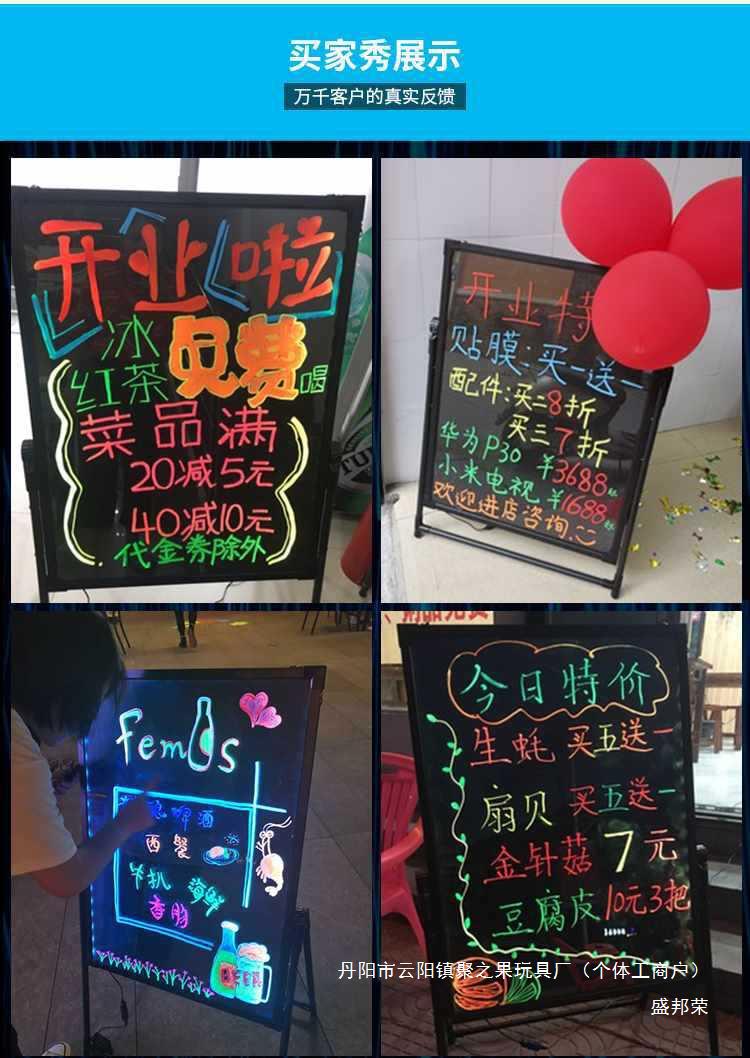 买家秀展示
万千客户的真实反馈
开业啦
冰
红茶免费喝
菜品满
20减5元
40减10元
代金券除外
开业特
贴膜:买一送一
配件:买二8折
买三7折
华为P30 ¥3688
小米电视 ¥1688
欢迎进店咨询
Femos
啤酒
西餐
牛扒 海鲜
香肠
今日特价
生蚝 买五送一
扇贝 买五送一
金针菇 7元
豆腐皮 10元3把
丹阳市云阳镇聚之果玩具厂（个体工商户）
盛邦荣